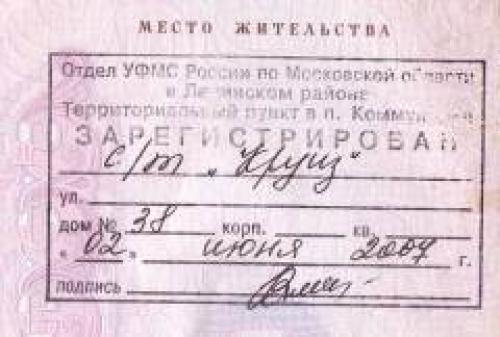 МЕСТО ЖИТЕЛЬСТВА
Отдел УФМС России по Московской области
в Ленинском районе
Территориальный пункт в п.
ЗАРЕГИСТРИРОВАН
с/т „Круиз"
ул.
дом № 38 корп. кв.
« 02 » июня 2007 г.
подпись